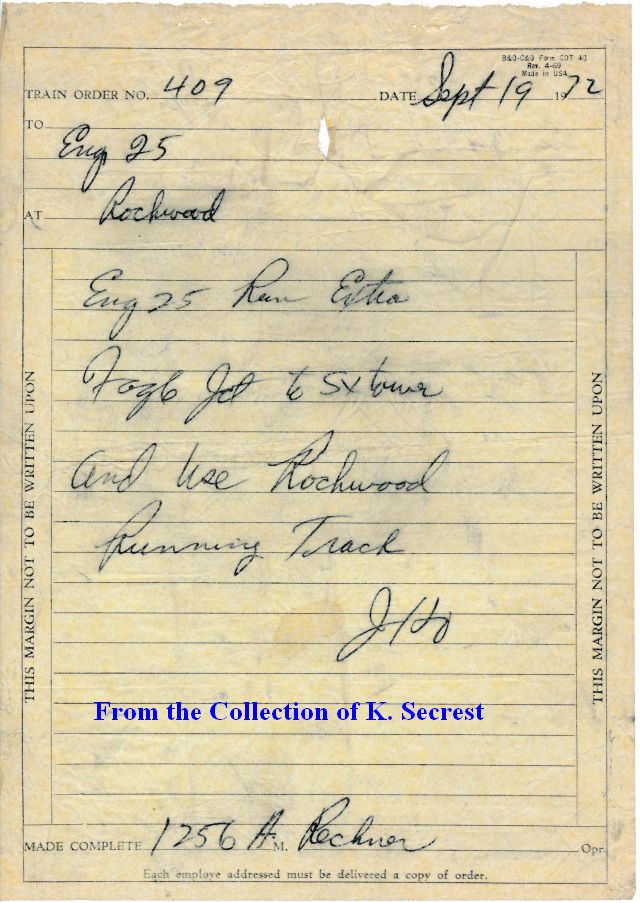 B&O-C&O Form CDT 40
Rev. 4-69
Made in USA
TRAIN ORDER NO. 409 DATE Sept 19 1972
TO Eng 25
AT Rockwood
Eng 25 Run Extra
Jct to SX tower
and use Rockwood
Running Track
THIS MARGIN NOT TO BE WRITTEN UPON
THIS MARGIN NOT TO BE WRITTEN UPON
From the Collection of K. Secrest
MADE COMPLETE 1256 A M. Rechner Opr.
Each employe addressed must be delivered a copy of order.